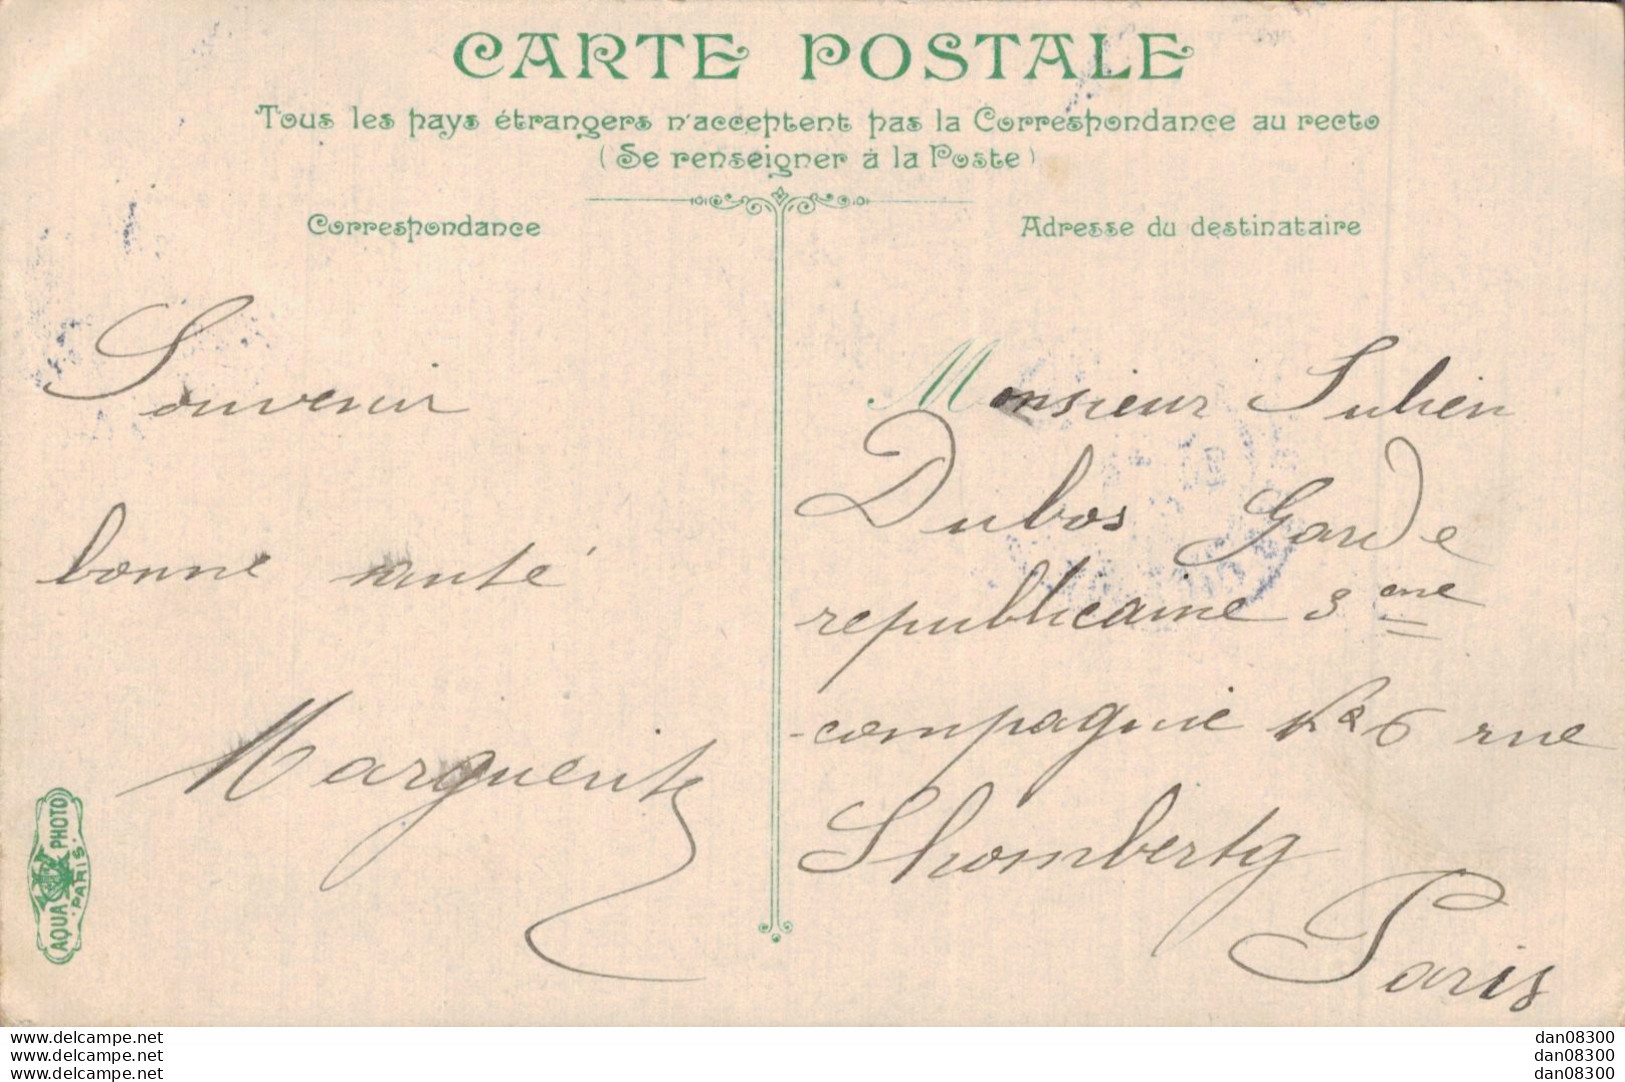 CARTE POSTALE
Tous les pays étrangers n'acceptent pas la Correspondance au recto
(Se renseigner à la Poste)
Correspondance
Adresse du destinataire
Souvenir
bonne santé
Marguerite
AQUA PHOTO
PARIS
Monsieur Julien
Dubos Garde
republicaine 3 eme
compagnie 6 rue
Shombertg
Paris
www.delcampe.net
www.delcampe.net
www.delcampe.net
dan08300
dan08300
dan08300